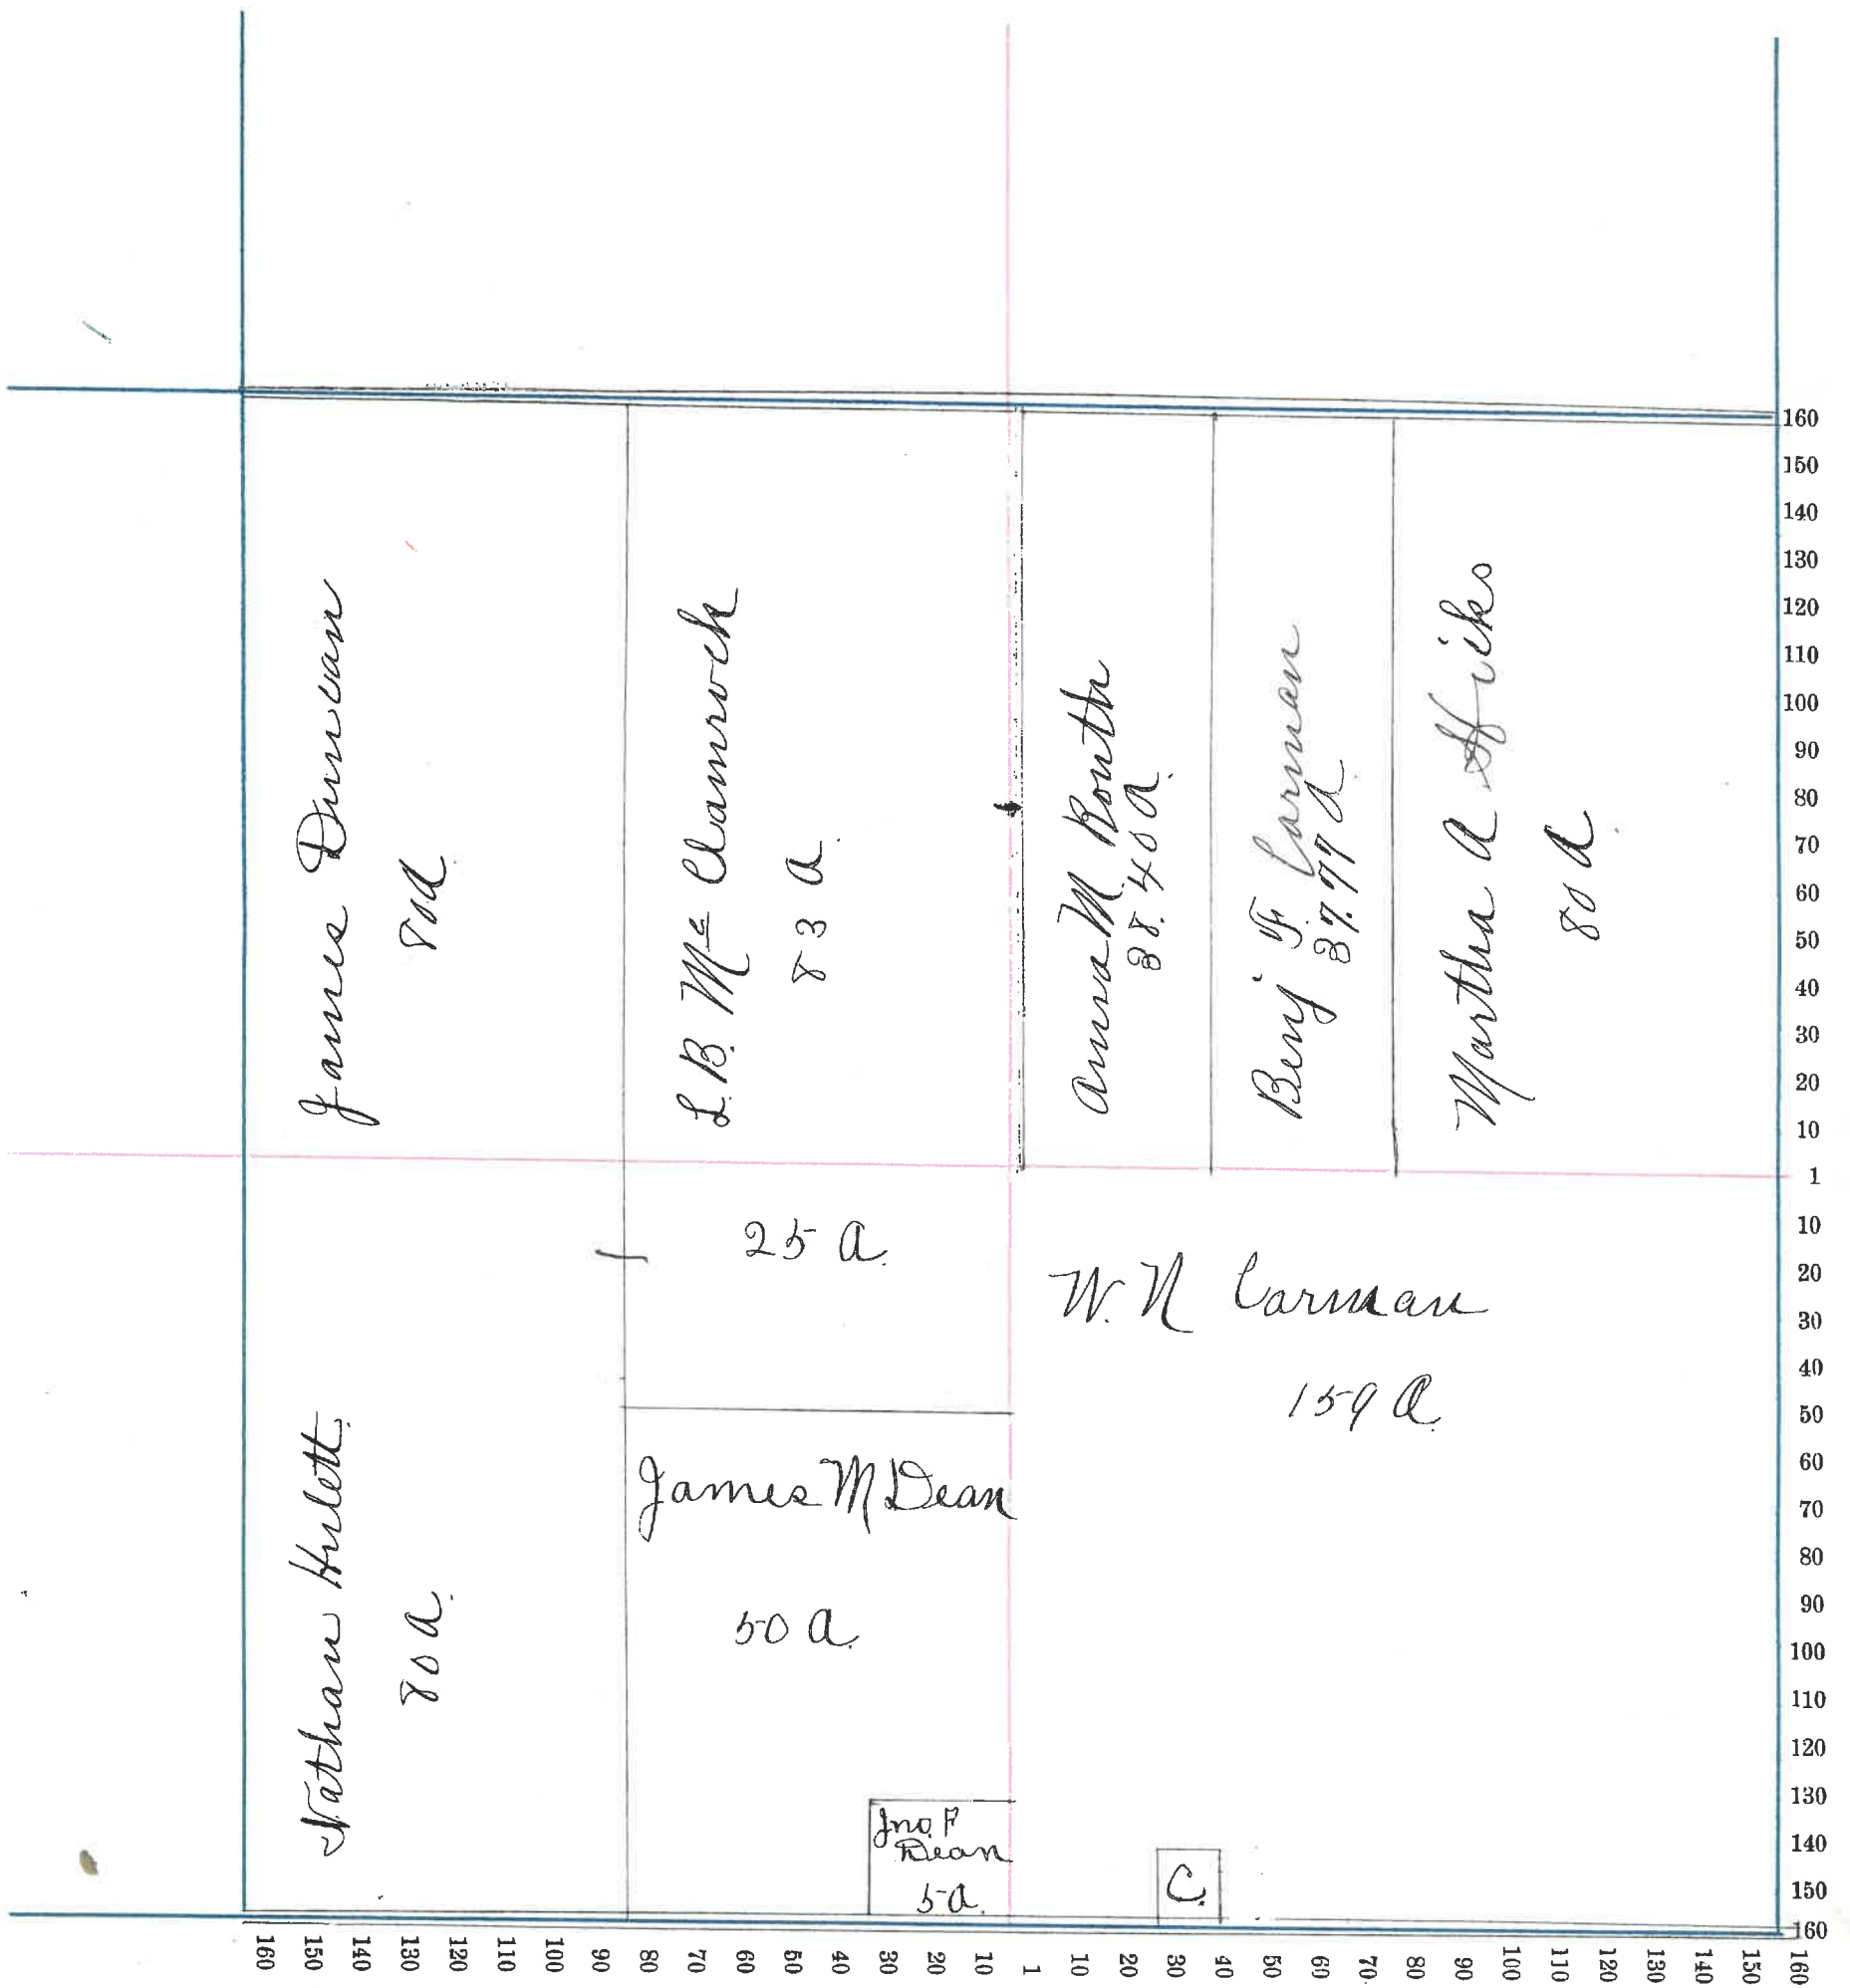 James Duncan
80 a
L. B. Mc Clamroch
83 a.
Anna M. Routh
38.40 a.
Benj F Carman
37.77 a
Martha A Hicks
80 a
25 a.
W. N Carman
159 a.
Nathan Hulett.
80 a.
James M Dean
50 a.
Jno. F
Dean
5 a.
C.
160
150
140
130
120
110
100
90
80
70
60
50
40
30
20
10
1
10
20
30
40
50
60
70
80
90
100
110
120
130
140
150
160
160
150
140
130
120
110
100
90
80
70
60
50
40
30
20
10
1
10
20
30
40
50
60
70
80
90
100
110
120
130
140
150
160